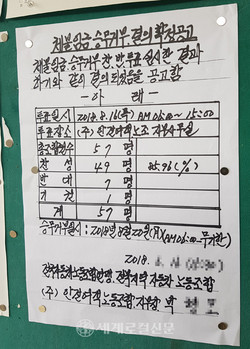 체불임금 승무거부 결의 확정공고
체불임금 승무거부 찬·반 투표 실시한 결과
하기와 같이 결의되었음을 공고함
— 아 래 —
투표일시 2018. 8. 16(목) AM 05:00 ~ 15:00
투표장소 (주) 안전여객노조 지부사무실
총조합원수 57 명
찬 성 49 명 85.96 (%)
반 대 7 명
기 권 1 명
계 57 명
승무거부일시 : 2018년 8월 20일(月)(AM 05:00 ~ 무기한)
2018.
전국자동차노동조합연맹, 전북지역 자동차 노동조합
(주) 안전여객노동조합 지부장 박
세계로컬신문